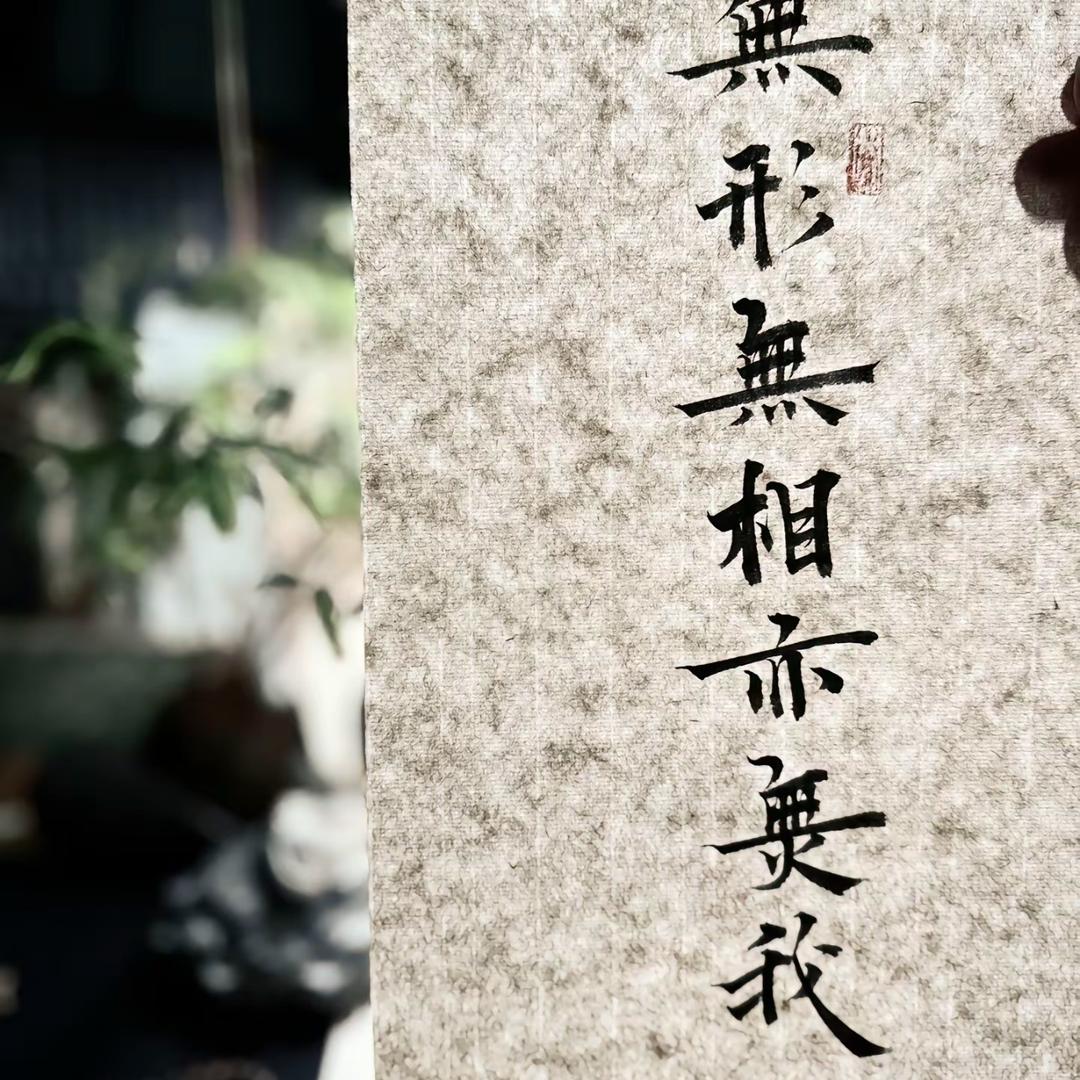 無形無相亦無我